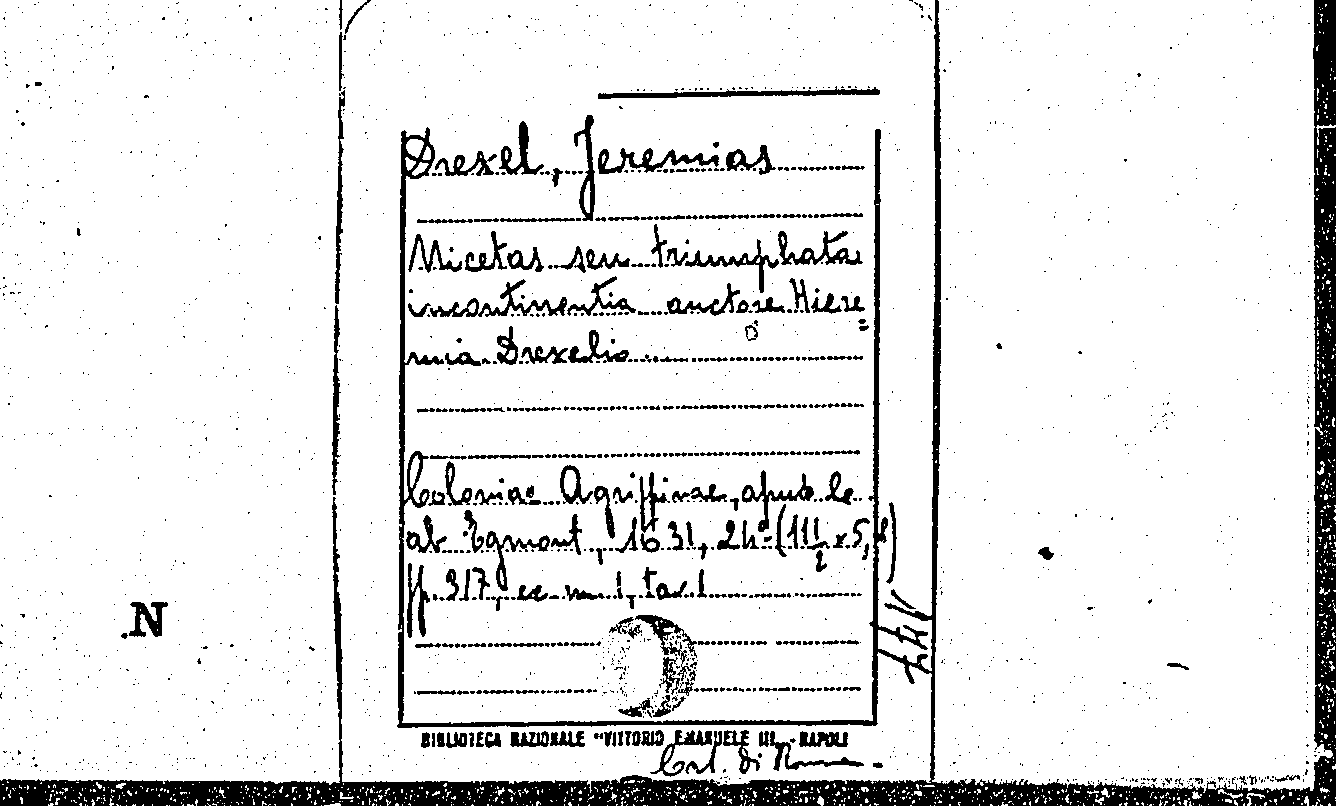 Drexel, Jeremias
Nicetas seu triumphata
incontinentia auctore Hiere
=
mia Drexelio
Coloniae Agrippinae, apud le
ab Egmont, 1631, 24º (11 1/2 x 5,8)
pp. 317, cc nn 1, tav 1
N
BIBLIOTECA NAZIONALE "VITTORIO EMANUELE III" - NAPOLI